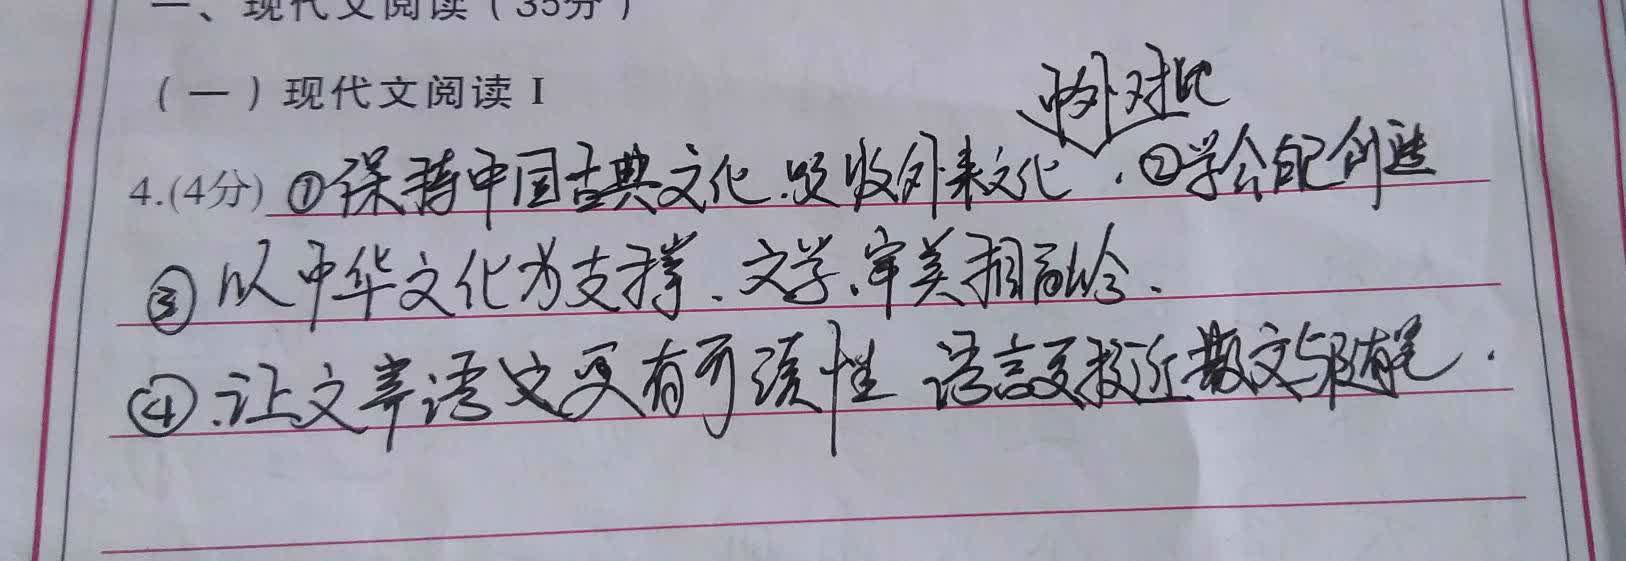 一、现代文阅读（35分）
（一）现代文阅读 I
中外对比
4.(4分) ①保持中国古典文化.吸收外来文化.②学会自己创造
③以中华文化为支撑、文学、审美相融合.
④.让文章语文更有可读性 语言更接近散文与随笔.